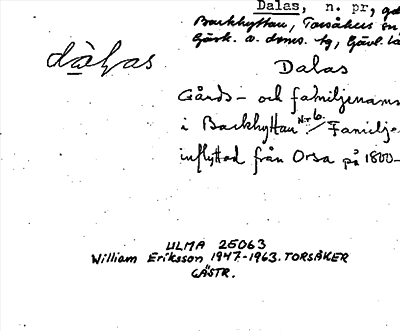 Dalas, n. pr,
Backhyttan, Torsåkers sn
Gästr. o. doms. tg, Gävl. lä
dàḷas
Dalas
Gårds- och familjenamn
i Backhyttan Nr 6. Familje
inflyttad från Orsa på 1800-
ULMA 25063
William Eriksson 1947-1963. TORSÅKER
GÄSTR.